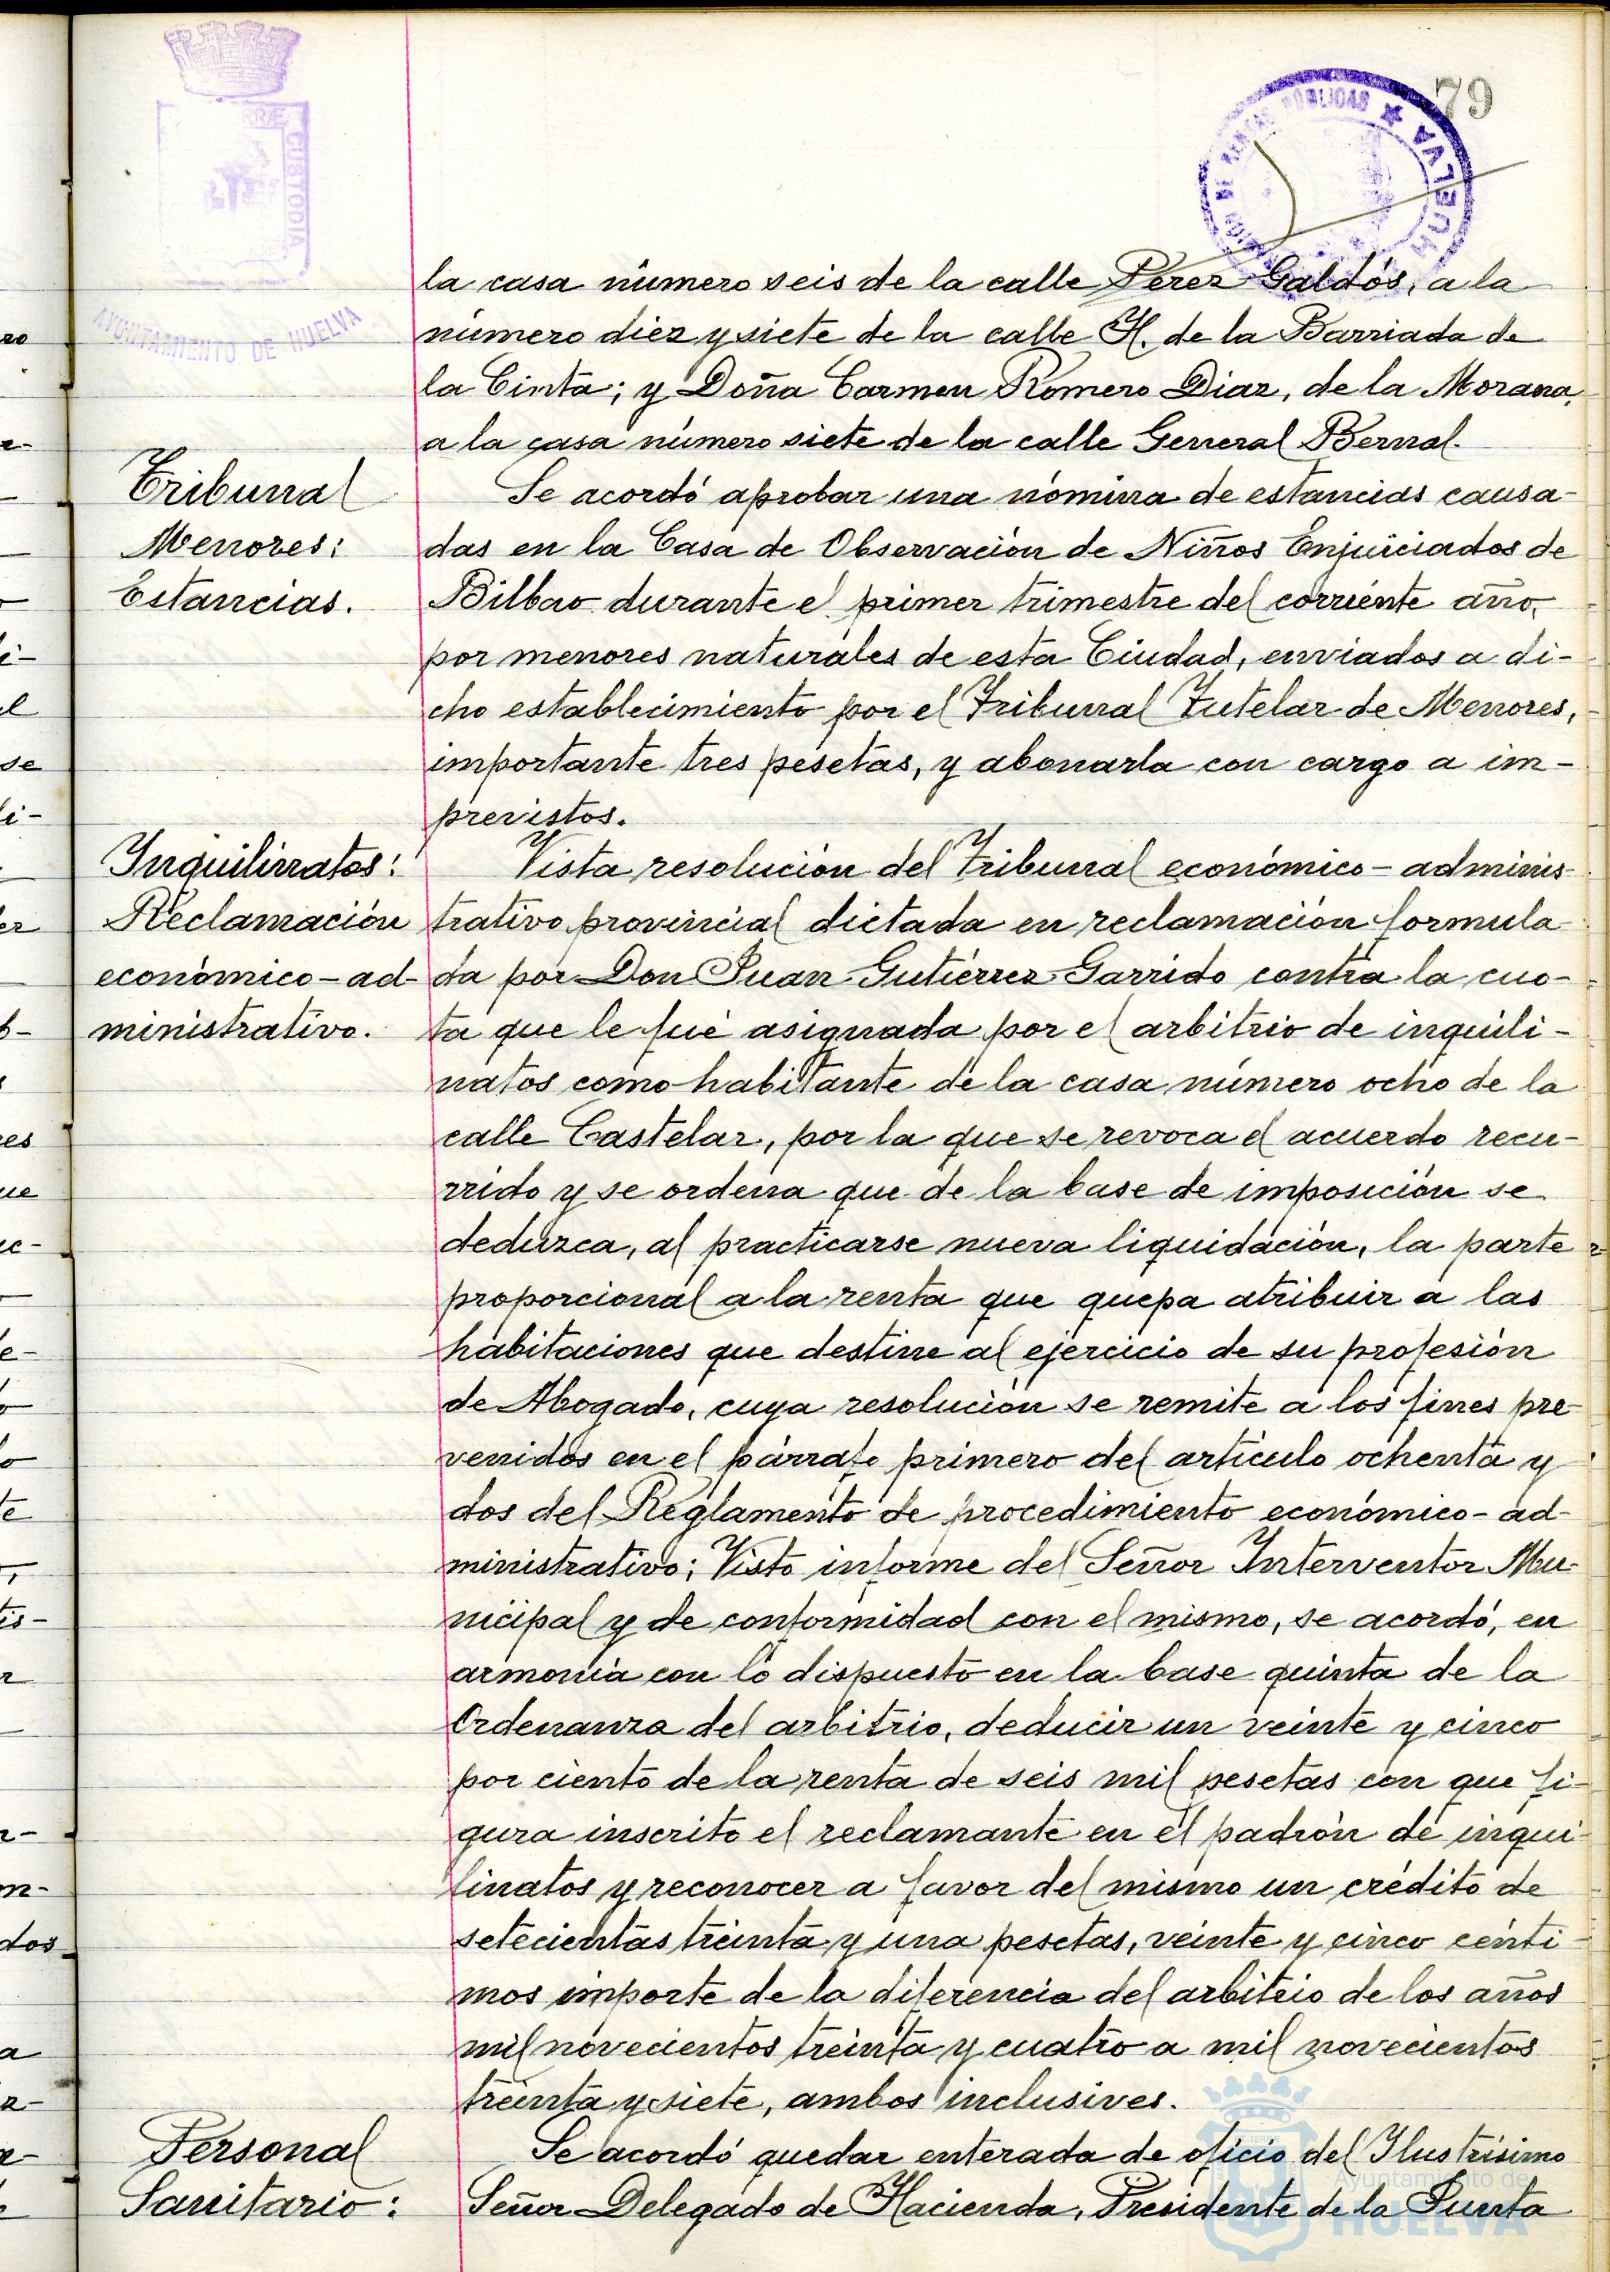 79
RRÆ CUSTODIA
AYUNTAMIENTO DE HUELVA
DE RENTAS PÚBLICAS ★ HUELVA
la casa número seis de la calle Pérez Galdós, a la
número diez y siete de la calle H. de la Barriada de
la Cinta; y Doña Carmen Romero Diaz, de la Morana,
a la casa número siete de la calle General Bernal.
Tribunal
Menores:
Estancias.
Se acordó aprobar una nómina de estancias causa-
das en la Casa de Observación de Niños Enjuiciados de
Bilbao durante el primer trimestre del corriente año,
por menores naturales de esta Ciudad, enviados a di-
cho establecimiento por el Tribunal Tutelar de Menores,
importante tres pesetas, y abonarla con cargo a im-
previstos.
Inquilinatos:
Reclamación
económico-ad-
ministrativo.
Vista resolución del Tribunal económico-adminis-
trativo provincial dictada en reclamación formula-
da por Don Juan Gutiérrez Garrido contra la cuo-
ta que le fué asignada por el arbitrio de inquili-
natos como habitante de la casa número ocho de la
calle Castelar, por la que se revoca el acuerdo recu-
rrido y se ordena que de la base de imposición se
deduzca, al practicarse nueva liquidación, la parte
proporcional a la renta que quepa atribuir a las
habitaciones que destine al ejercicio de su profesión
de Abogado, cuya resolución se remite a los fines pre-
venidos en el párrafo primero del artículo ochenta y
dos del Reglamento de procedimiento económico-ad-
ministrativo; Visto informe del Señor Interventor Mu-
nicipal y de conformidad con el mismo, se acordó, en
armonía con lo dispuesto en la base quinta de la
Ordenanza del arbitrio, deducir un veinte y cinco
por ciento de la renta de seis mil pesetas con que fi-
gura inscrito el reclamante en el padrón de inqui-
linatos y reconocer a favor del mismo un crédito de
setecientas treinta y una pesetas, veinte y cinco cénti-
mos importe de la diferencia del arbitrio de los años
mil novecientos treinta y cuatro a mil novecientos
treinta y siete, ambos inclusives.
Personal
Sanitario:
Se acordó quedar enterada de oficio del Ilustrísimo
Señor Delegado de Hacienda, Presidente de la Junta
Ayuntamiento de
HUELVA